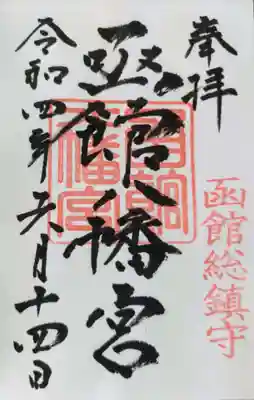 奉拝
函館総鎮守
函館八幡宮
函館
八幡宮
令和四年六月十四日